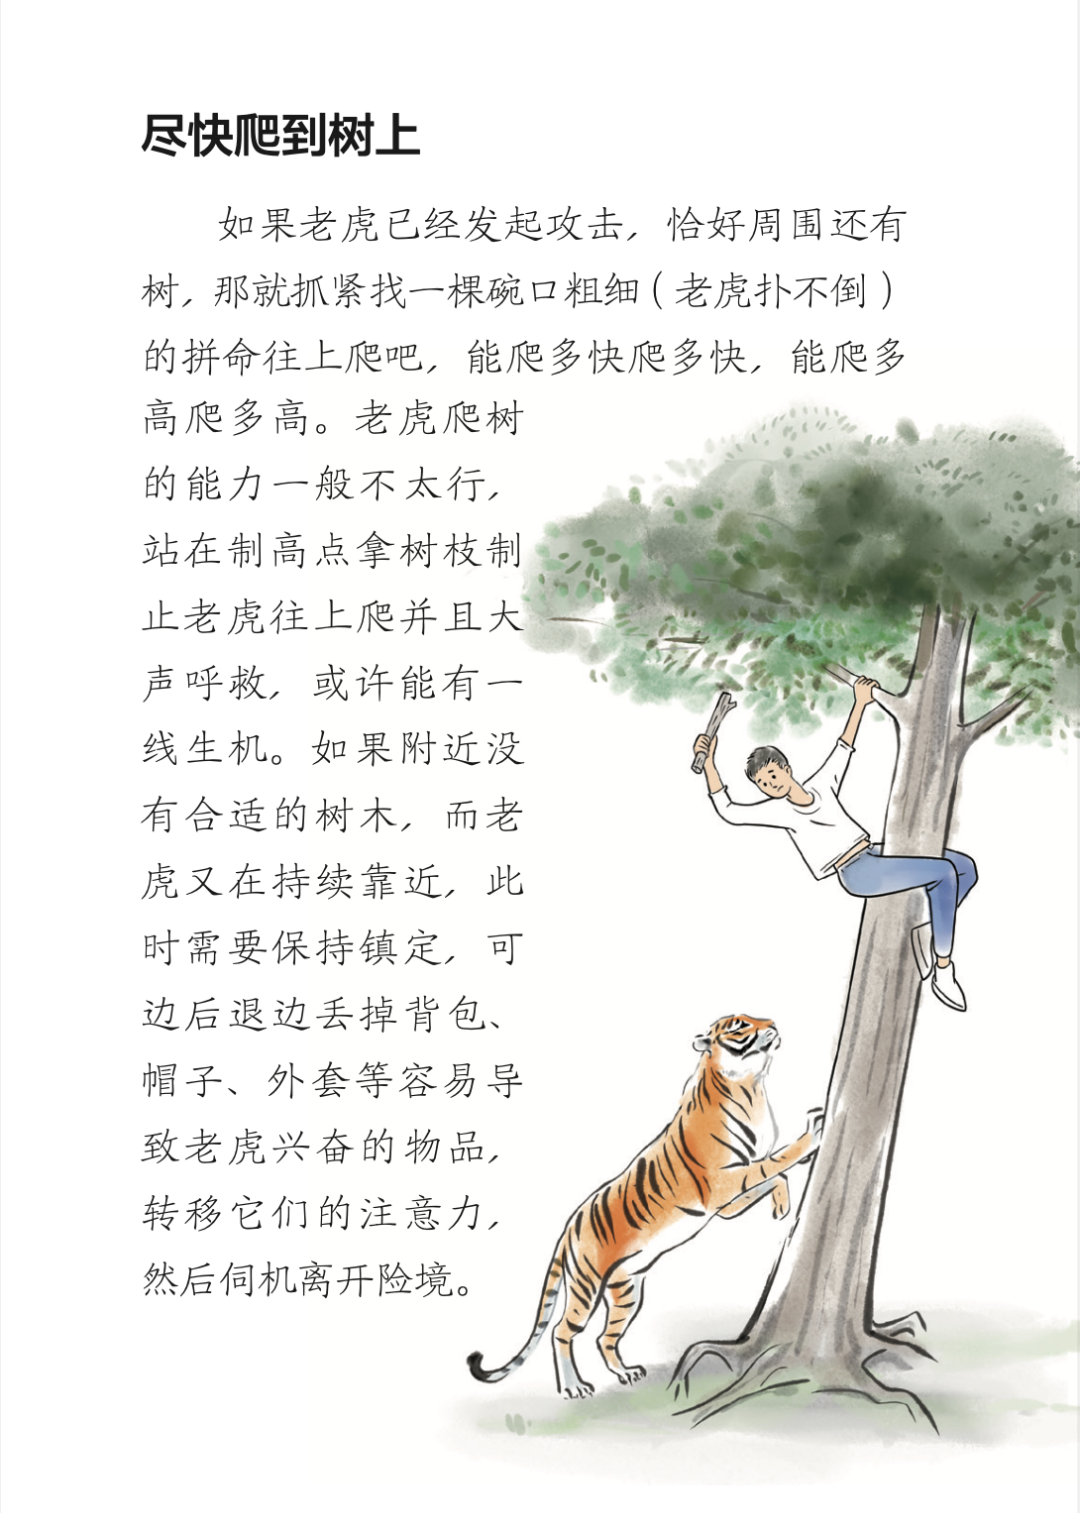 尽快爬到树上
如果老虎已经发起攻击，恰好周围还有
树，那就抓紧找一棵碗口粗细（老虎扑不倒）
的拼命往上爬吧，能爬多快爬多快，能爬多
高爬多高。老虎爬树
的能力一般不太行，
站在制高点拿树枝制
止老虎往上爬并且大
声呼救，或许能有一
线生机。如果附近没
有合适的树木，而老
虎又在持续靠近，此
时需要保持镇定，可
边后退边丢掉背包、
帽子、外套等容易导
致老虎兴奋的物品，
转移它们的注意力，
然后伺机离开险境。